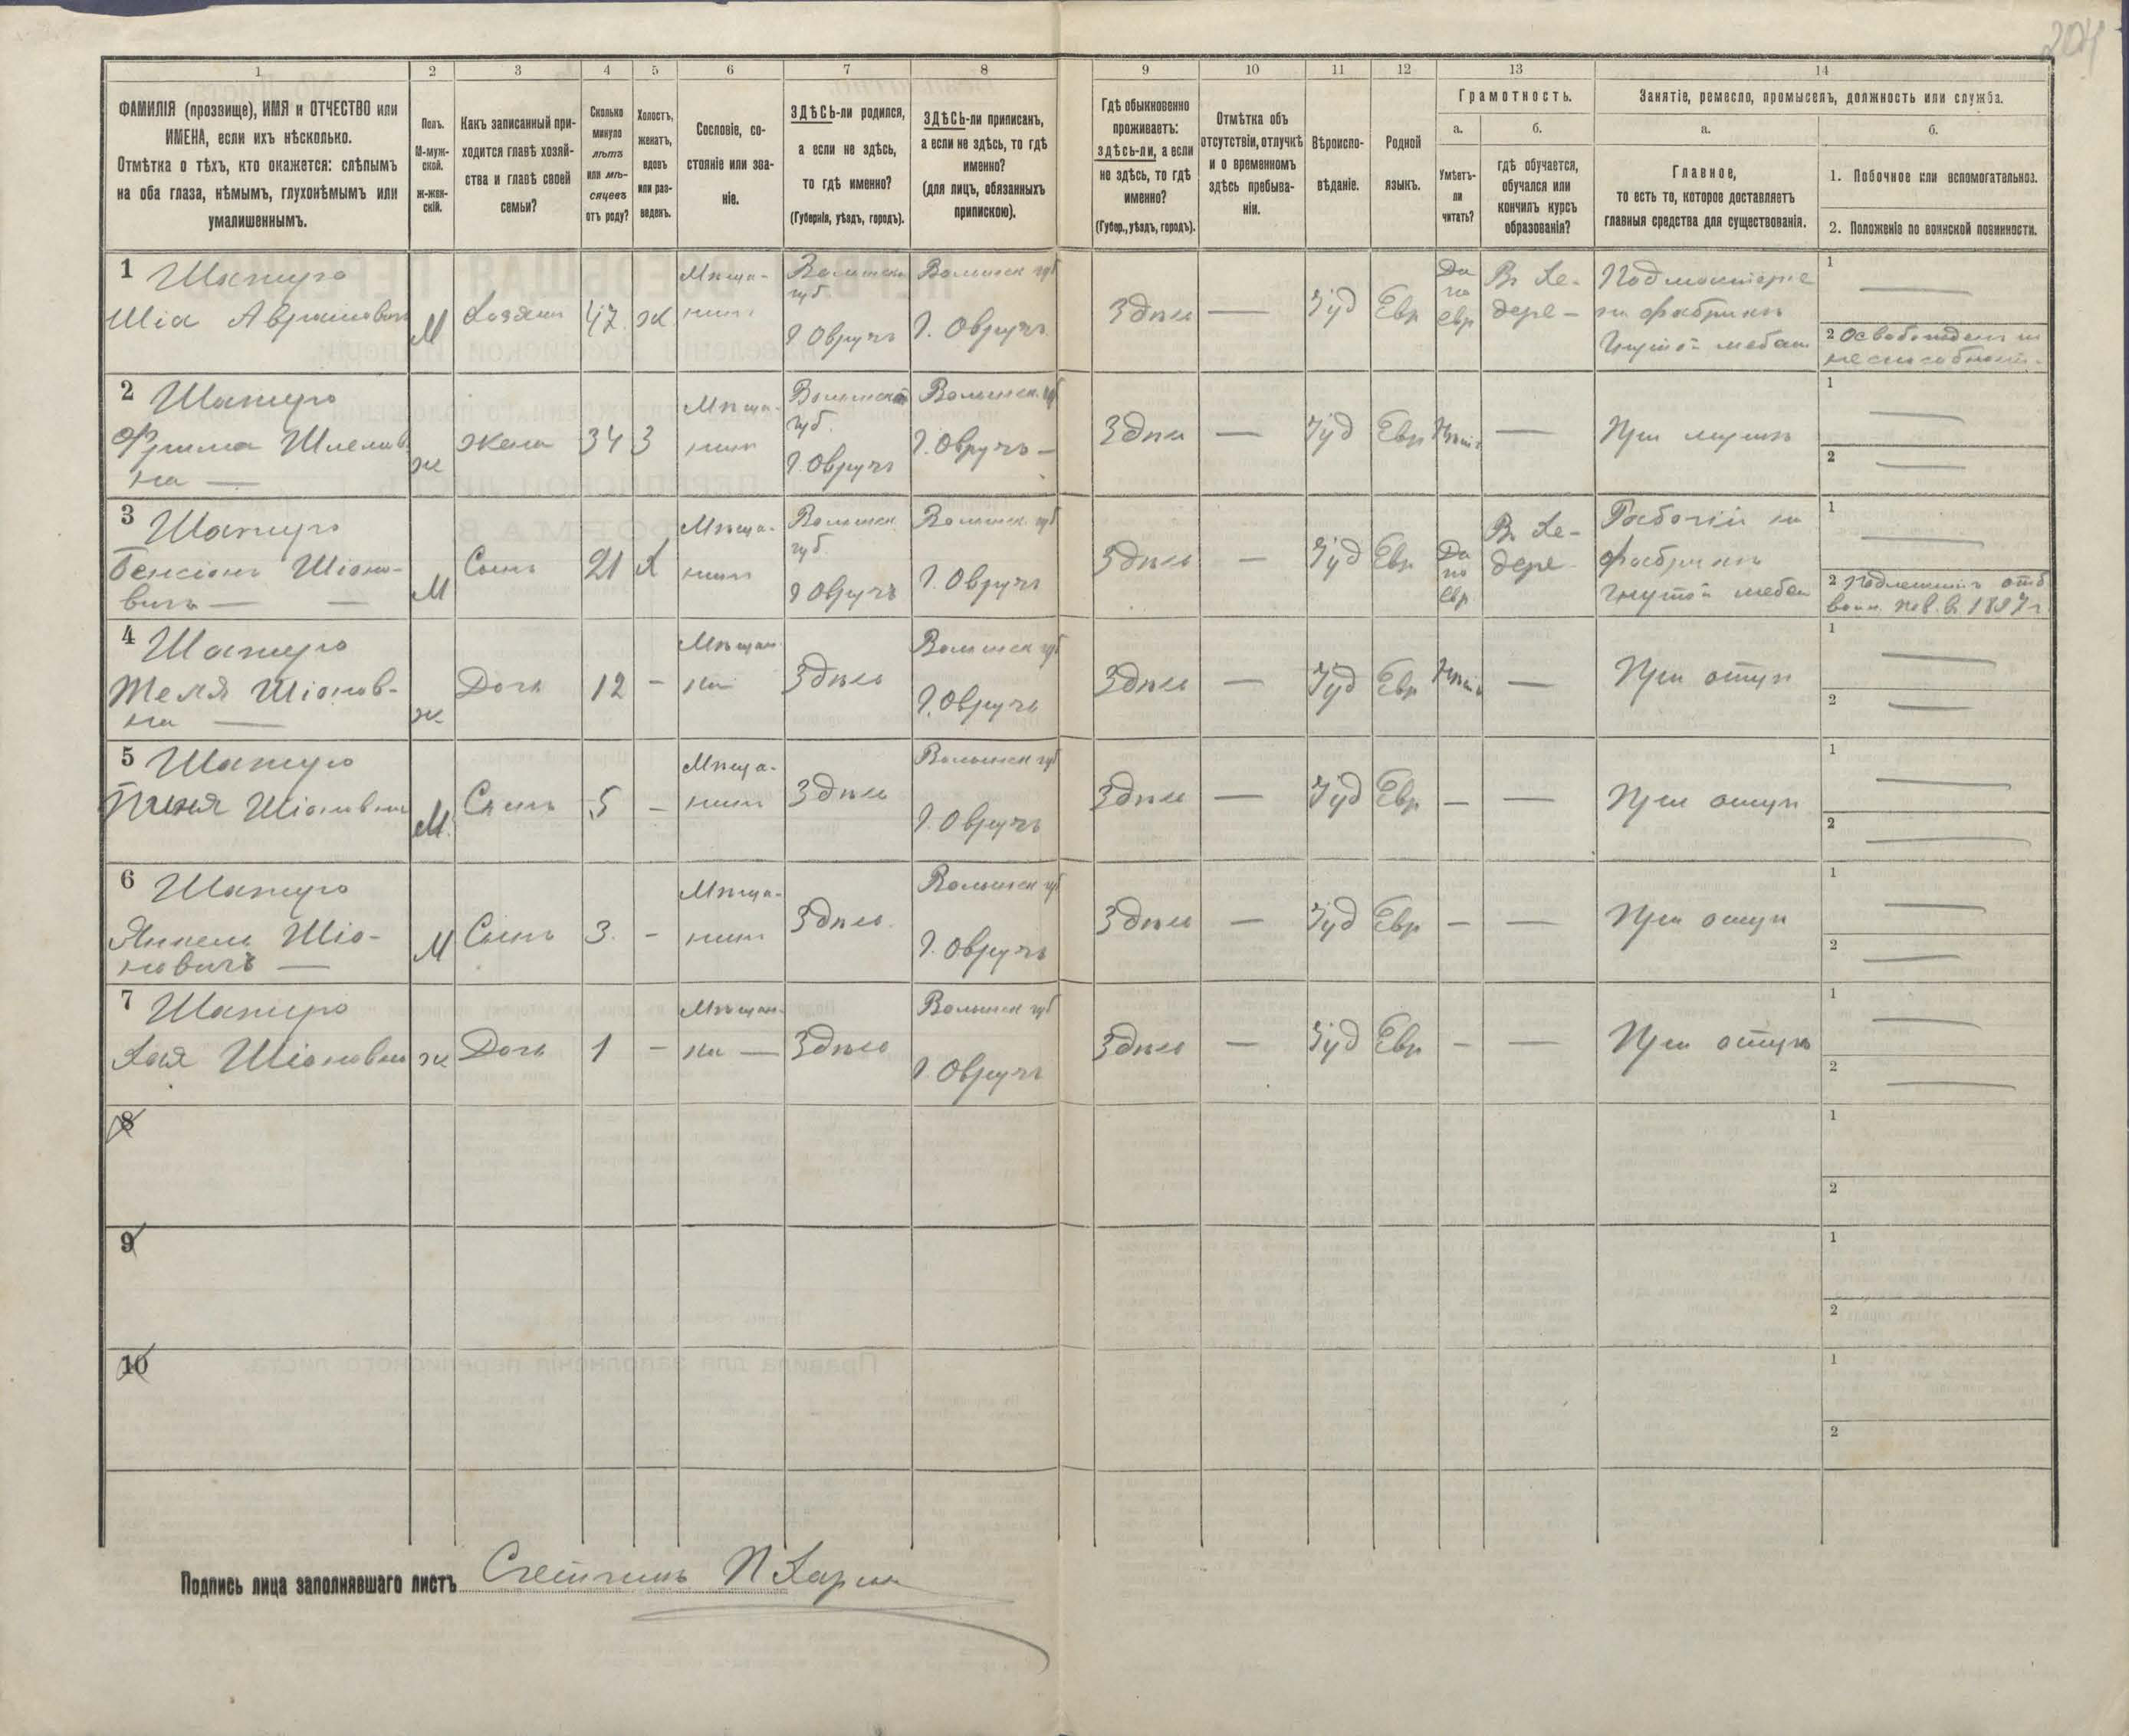 204
1 2 3 4 5 6 7 8 9 10 11 12 13 14
ФАМИЛІЯ (прозвище), ИМЯ и ОТЧЕСТВО или
ИМЕНА, если ихъ нѣсколько.
Отмѣтка о тѣхъ, кто окажется: слѣпымъ
на оба глаза, нѣмымъ, глухонѣмымъ или
умалишеннымъ.
Полъ.
М-муж-
ской.
Ж-жен-
скій.
Какъ записанный при-
ходится главѣ хозяй-
ства и главѣ своей
семьи?
Сколько
минуло
лѣтъ
или мѣ-
сяцевъ
отъ роду?
Холостъ,
женатъ,
вдовъ
или раз-
веденъ.
Сословіе, со-
стояніе или зва-
ніе.
ЗДѢСЬ-ли родился,
а если не здѣсь,
то гдѣ именно?
(Губернія, уѣздъ, городъ).
ЗДѢСЬ-ли приписанъ,
а если не здѣсь, то гдѣ
именно?
(для лицъ, обязанныхъ
припискою).
Гдѣ обыкновенно
проживаетъ:
здѣсь-ли, а если
не здѣсь, то гдѣ
именно?
(Губер., уѣздъ, городъ).
Отмѣтка объ
отсутствіи, отлучкѣ
и о временномъ
здѣсь пребыва-
ніи.
Вѣроиспо-
вѣданіе.
Родной
языкъ.
Грамотность.
а.
Умѣетъ-
ли
читать?
б.
гдѣ обучается,
обучался или
кончилъ курсъ
образованія?
Занятіе, ремесло, промыселъ, должность или служба.
а.
Главное,
то есть то, которое доставляетъ
главныя средства для существованія.
б.
1. Побочное или вспомогательное.
2. Положеніе по воинской повинности.
1 Шапиро
Шіа Абрамович
М
Хозяин
47
ж.
Мѣща-
нин
Волынск
губ
г Овручъ
Волынск губ
г. Овручъ
Здѣсь
—
Іуд
Евр
Да
по
евр
Въ Хе-
дере —
Подмастерье
на фабрикѣ
Гнутой мебели
1 —
2 Освобожден по
неспособност.
2 Шапиро
Фрима Шлемов
на —
ж
жена
34
З
Мѣща-
нин
Волынской
губ.
г. Овручъ
Волынск. губ
г. Овручъ —
Здѣсь
—
Іуд
Евр
Нѣтъ
—
При мужѣ
1 —
2 —
3 Шапиро
Бенсіонъ Шіоно-
вичъ — —
М
Сынъ
21
Х
Мѣща-
нинъ
Волынск
губ
г Овручъ
Волынск. губ
г. Овручъ
Здѣсь
—
Іуд
Евр
Да
по
евр
Въ Хе-
дере
Рабочій на
фабрикѣ
Гнутой мебели
1 —
2 Подлежитъ отб.
воин. пов. в. 1897 г.
4 Шапиро
Шіонов-
на —
ж
Дочь
12
—
Мѣщан
ка
Здѣсь
Волынск губ
г. Овручъ
Здѣсь
—
Іуд
Евр
Нѣтъ
—
При отцѣ
1 —
2 —
5 Шапиро
Пиня
М.
Сынъ
5
—
Мѣща-
нинъ
Здѣсь
Волынск губ
г. Овручъ
Здѣсь
—
Іуд
Евр
—
—
При отцѣ
1 —
2 —
6 Шапиро
Янкель Шіо-
новичъ —
М
Сынъ
3.
—
Мѣща-
нинъ
Здѣсь.
Волынск губ
г. Овручъ
Здѣсь
—
Іуд
Евр
—
—
При отцѣ
1 —
2 —
7 Шапиро
Хая Шіоновна
ж
Дочь
1
—
Мѣщан-
ка —
Здѣсь
Волынск губ
г. Овручъ
Здѣсь
—
Іуд
Евр
—
—
При отцѣ
1 —
2 —
8
1
2
9
1
2
10
1
2
Подпись лица заполнявшаго листъ Счетчикъ П